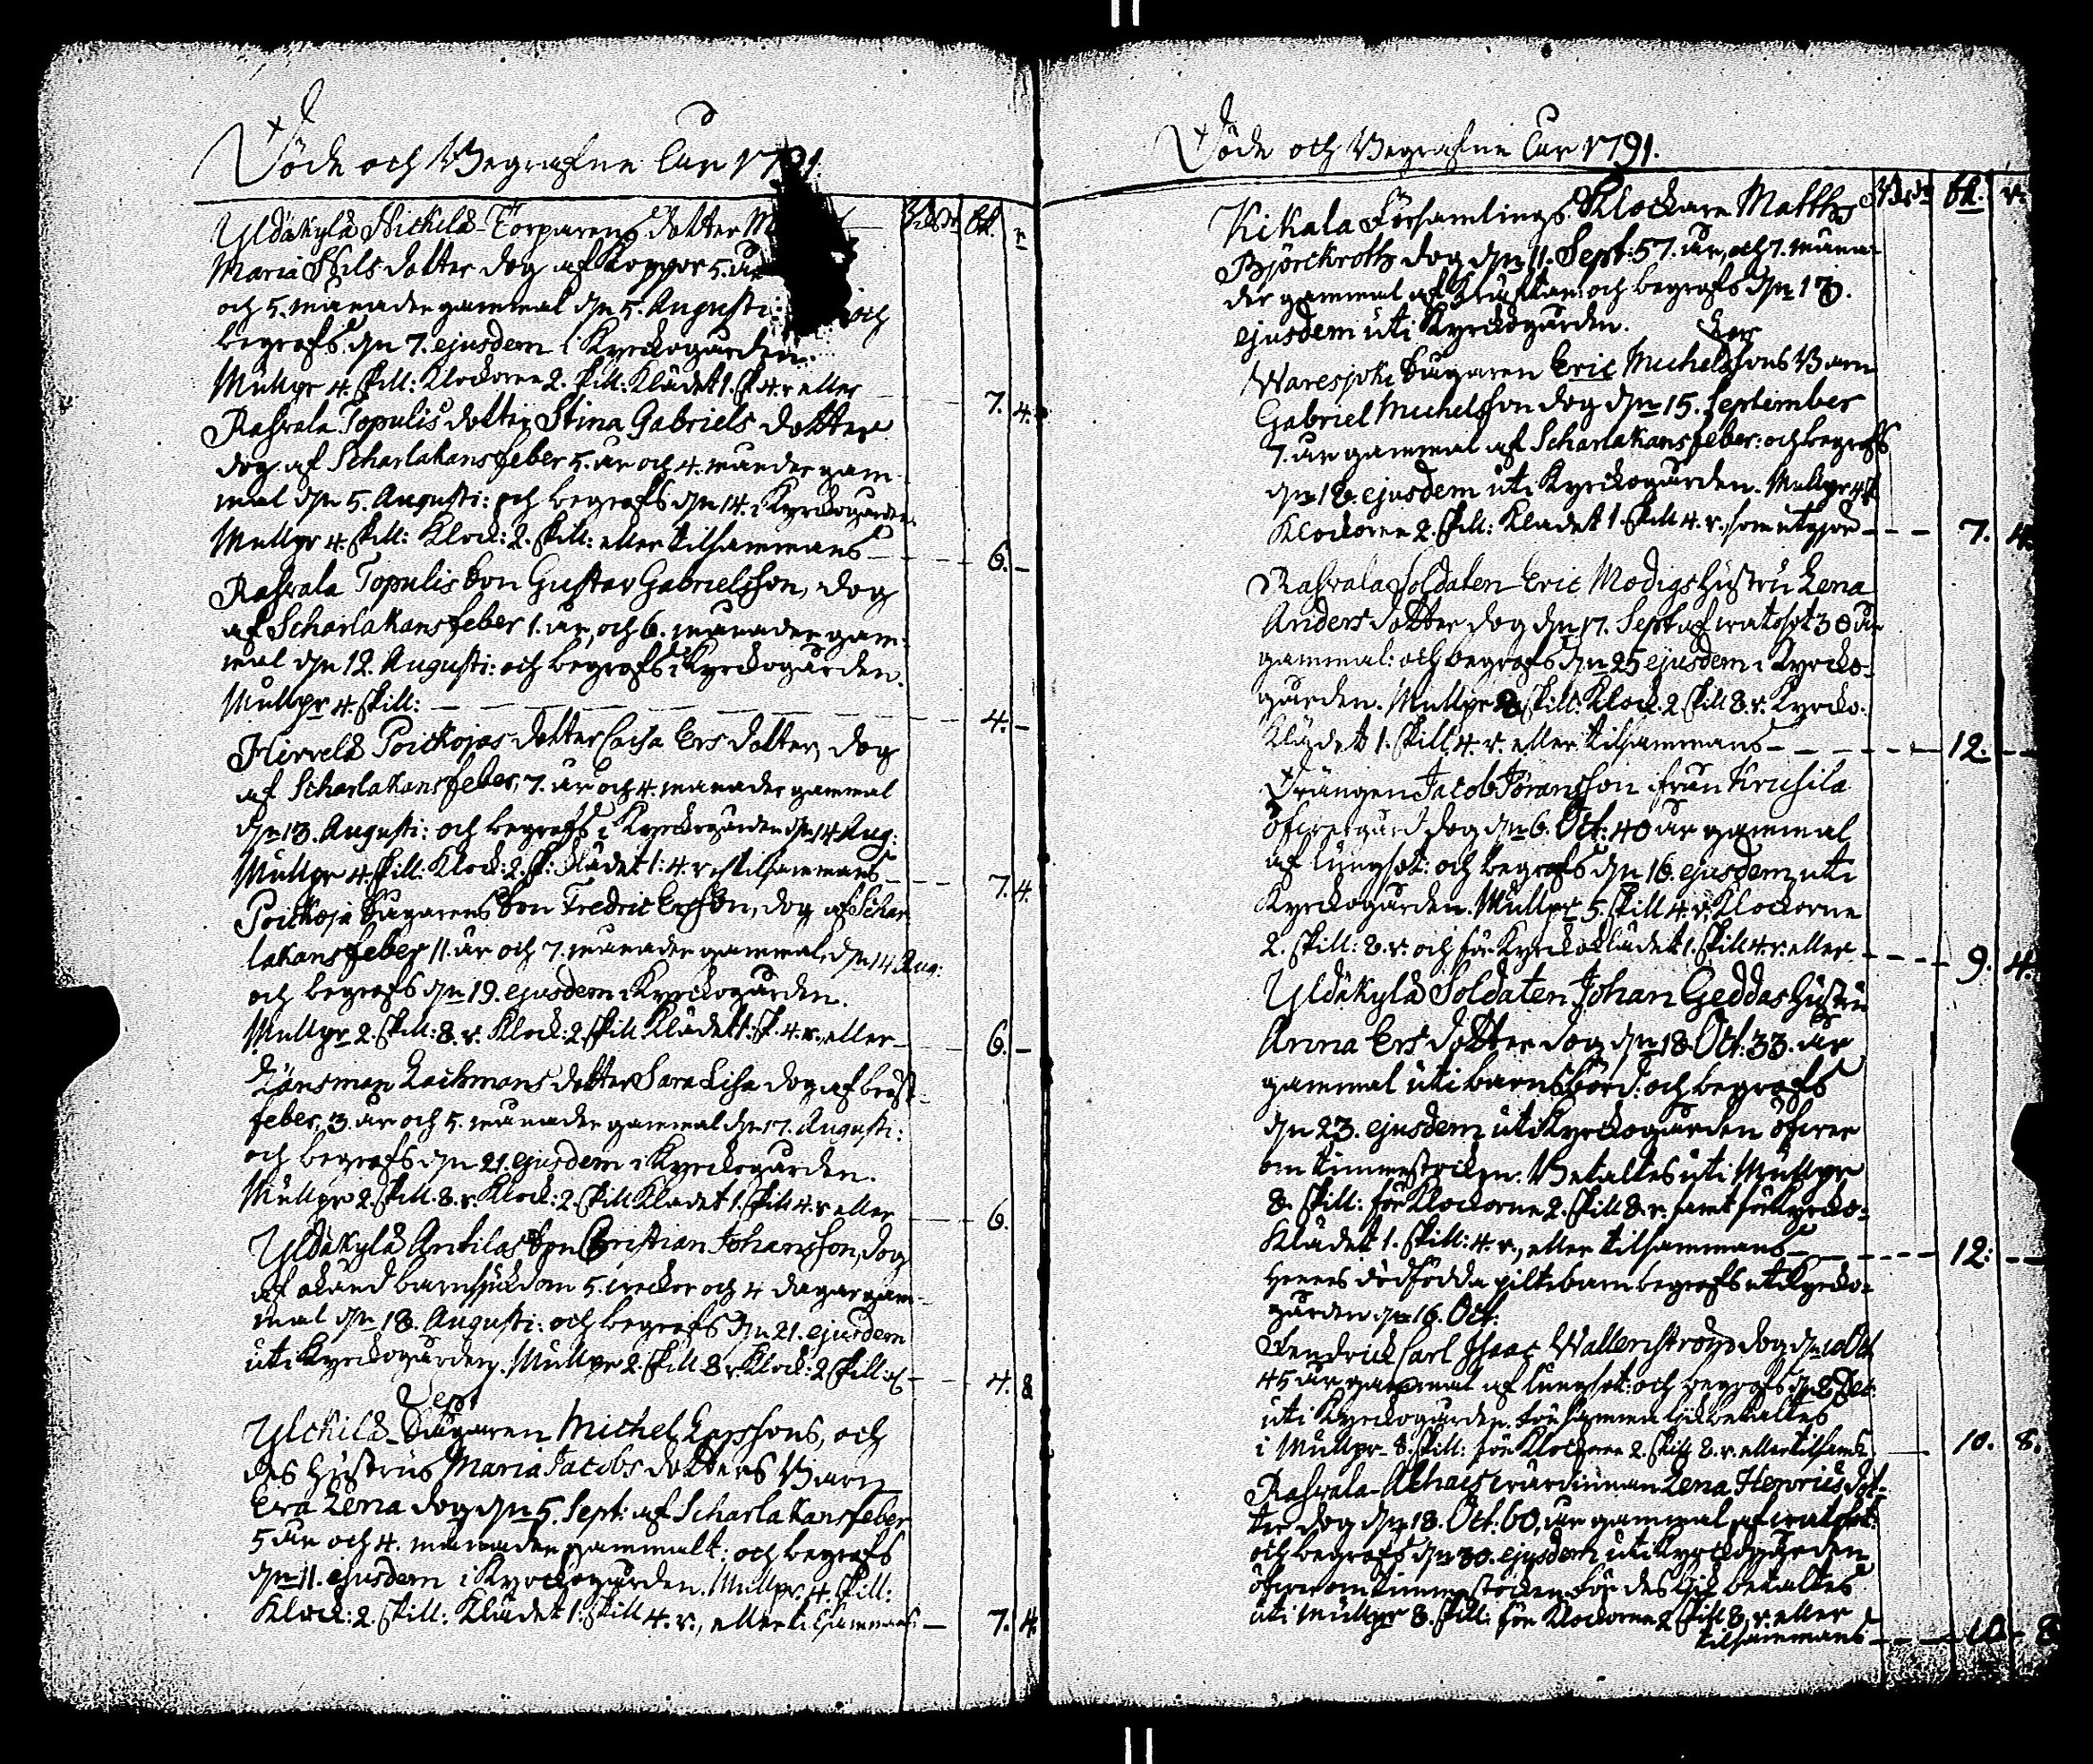 Döde och Begrafne Åhr 1791.
Yldäkylä Nickilä Torparens dotter
Maria Nils dotter dog af Koppor 5. år
och 5. månader gammal dn 5. Augusti: och
begrofs dn 7. ejusdem i Kyrckogården.
Mullpr 4. skill: Klockorne 2. skill: Klädet 1. sk 4. r eller 7. 4.
Rasvala Topulis dotter Stina Gabriels dotter
dog af Scharlakansfeber 5. år och 4. månader gam-
mal dn 5. Augusti: och begrofs dn 14. i Kyrckogården
Mullpr 4. skill: Klock: 2. skill: eller tilsammans 6. -
Rasvala Topulis Son Gustav Gabrielsson, dog
af Scharlakansfeber 1. år, och 6. månader gam-
mal dn 12. Augusti: och begrofs i Kyrckogården.
Mullpr 4. skill: 4. -
Hirvelä Poickojas dotter Caisa Ers dotter, dog
af Scharlakansfeber, 7. år och 4. månader gammal
dn 13. Augusti: och begrofs i Kyrckogården dn 14 Aug:
Mullpr 4. skill. Klock: 2. sk: klädet 1: 4. r tilsammans 7. 4.
Poickoja Sågarens Son Fredric Ersson, dog af Schar
lakansfeber 11. år och 7. månader gammal, dn 14 Aug:
och begrofs dn 19. ejusdem i Kyrckogården.
Mullpr 2. skill: 8. r. Klock: 2. skill. Klädet 1. sk. 4. r., eller 6. -
Länsman Lachmans dotter Sara Lisa dog af bröst
feber, 3. år och 5. månader gammal dn 17. Augusti:
och begrofs dn 21. ejusdem i Kyrckogården.
Mullpr 2. skill. 8. r. Klock: 2. skill Klädet 1. skill 4. r eller 6.
Yldäkylä Antilas Son Christian Johansson, dog
af okänd barnsjuckdom 5. veckor och 4 dagar gam-
mal dn 18. Augusti: och begrofs dn 21. ejusdem
uti Kyrckogården. Mullpr 2. skill 8 r. Klock: 2 skill: 4. 8
Sept
Ylckilä Sågaren Michel Ersssons, och
des Hustrus Maria Jacobs dotters Barn
Eva Lena dog dn 5. Sept: af Scharlakansfeber
5 år och 4. månader gammalt: och begrofs
dn 11. ejusdem i Kyrckogården. Mullpr. 4. skill:
Klock: 2. skill: Klädet 1. skill 4. r., eller tilsammans 7. 4.
Döde och Begrafne Åhr 1791.
Kikala Församlings Klockare Matths
Björckroth dog dn 11. Sept: 57. år, och 7. måna-
der gammal af och begrofs dn 18.
ejusdem uti Kyrckogården.
Sågaren Eric Michelssons Barn
Gabriel Michelsson dog dn 15. September
7. år gammal af Scharlakansfeber: och begrofs
dn 18. ejusdem uti Kyrckogården. Mullpr 4 sk
Klockorne 2. skill: Klädet 1. skill 4. r., som utgjör 7. 4.
Rasvala Soldaten Eric Modigs Hustru Lena
Anders dotter dog dn 17. Sept af watsot 30 år
gammal: och begrofs dn 25 ejusdem i Kyrcko-
gården. Mullpr 8. skill: Klock. 2 skill 8. r. Kyrcko-
klädet 1. skill 4 r. eller tilsammans 12. -
Drängen Jacob Jöransson från Krusila
öfvergård dog dn 6. Oct: 40 år gammal
af lungsot: och begrofs dn 16. ejusdem uti
Kyrckogården. Mullpr 5. skill 4. r. Klockorne
2. skill: 8. r. och för Kyrckoklädet 1. skill 4 r. eller 9. 4.
Yldäkylä Soldaten Johan Geddas Hustru
Anna Ers dotter dog dn 18. Oct: 33. år
gammal uti barnsbörd: och begrofs
dn 23. ejusdem uti Kyrckogården öfver
om timmerstocken. Betaltes uti Mullpr
8. skill: för Klockorne 2. skill 8. r. samt för Kyrcko-
klädet 1. skill: 4. r., eller tilsammans 12: -
Hennes dödfödda piltebarn begrofs uti Kyrcko-
gården dn 16. Oct.
Fendrick Carl Isaac Wallenström dog dn Oct
45 år gammal af lungsot: och begrofs dn
uti Kyrckogården. betaltes
i Mullpr 8. skill: för Klockorne 2. skill 8. r. eller tilsam: 10. 8.
Rasvala wärdinnan Lena Henrics dot-
ter dog dn 18. Oct: 60, år gammal, af watsot:
och begrofs dn 30. ejusdem uti Kyrckogården
öfver om timmerstocken. För des betaltes
uti Mullpr 8. skill: för Klockorne 2 skill 8. r. eller
tilsammans 10. 8